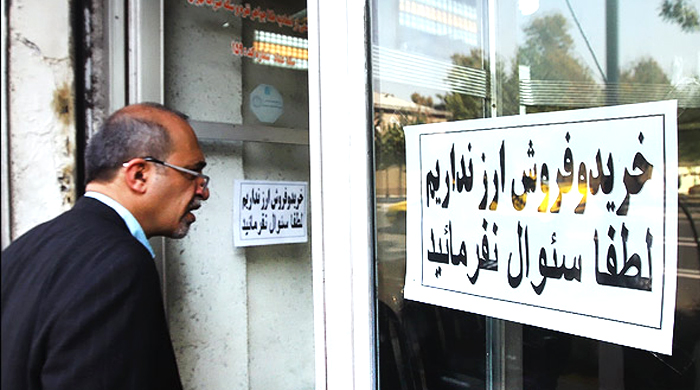 خریدوفروش ارز نداریم
لطفا سئوال نفرمائید
خریدوفروش ارز نداریم
لطفا سئوال نفرمائید